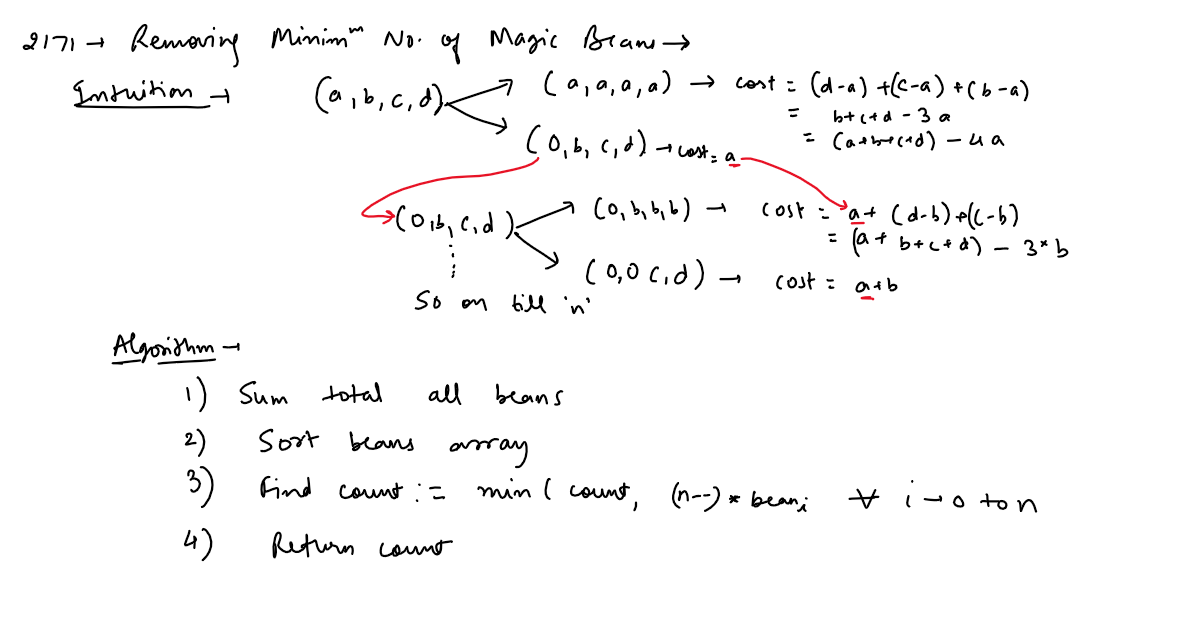 2171 → Removing Minimᵐ No. of Magic Beans →
Intuition → (a, b, c, d) (a, a, a, a) → cost = (d-a) + (c-a) + (b-a)
= b+c+d - 3a
= (a+b+c+d) - 4a
(0, b, c, d) → cost = a
(0, b, c, d) (0, b, b, b) → cost = a + (d-b) + (c-b)
= (a + b+c+d) - 3*b
(0, 0 c, d) → cost = a+b
So on till 'n'
Algorithm →
1) Sum total all beans
2) Sort beans array
3) Find count := min ( count, (n--) * beani ∀ i → 0 to n
4) Return count